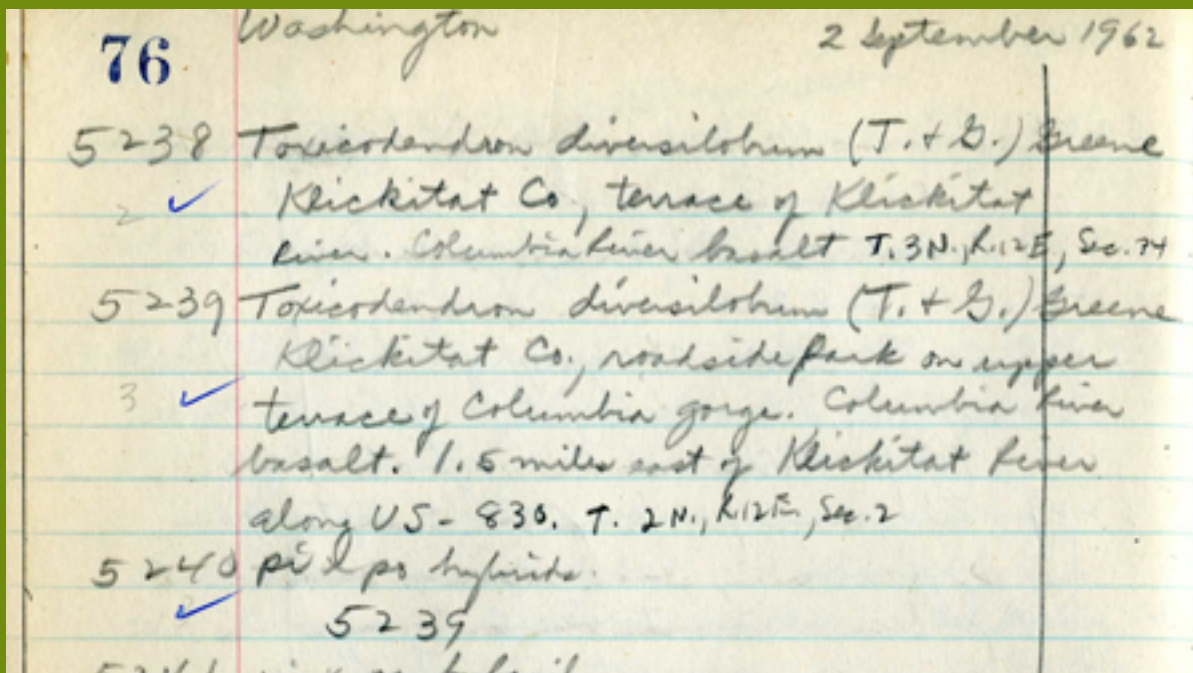 76 Washington 2 September 1962
5238 Toxicodendron diversilobum (T. + G.) Greene
2 ✓ Klickitat Co., terrace of Klickitat
River. Columbia River basalt T. 3N., R.12E, Sec.
5239 Toxicodendron diversilobum (T. + G.) Greene
Klickitat Co., roadside park on upper
3 ✓ terrace of Columbia gorge. Columbia River
basalt. 1.5 miles east of Klickitat River
along US-830. T. 2N., R.12E., Sec. 2
5240 hybrids.
✓ 5239